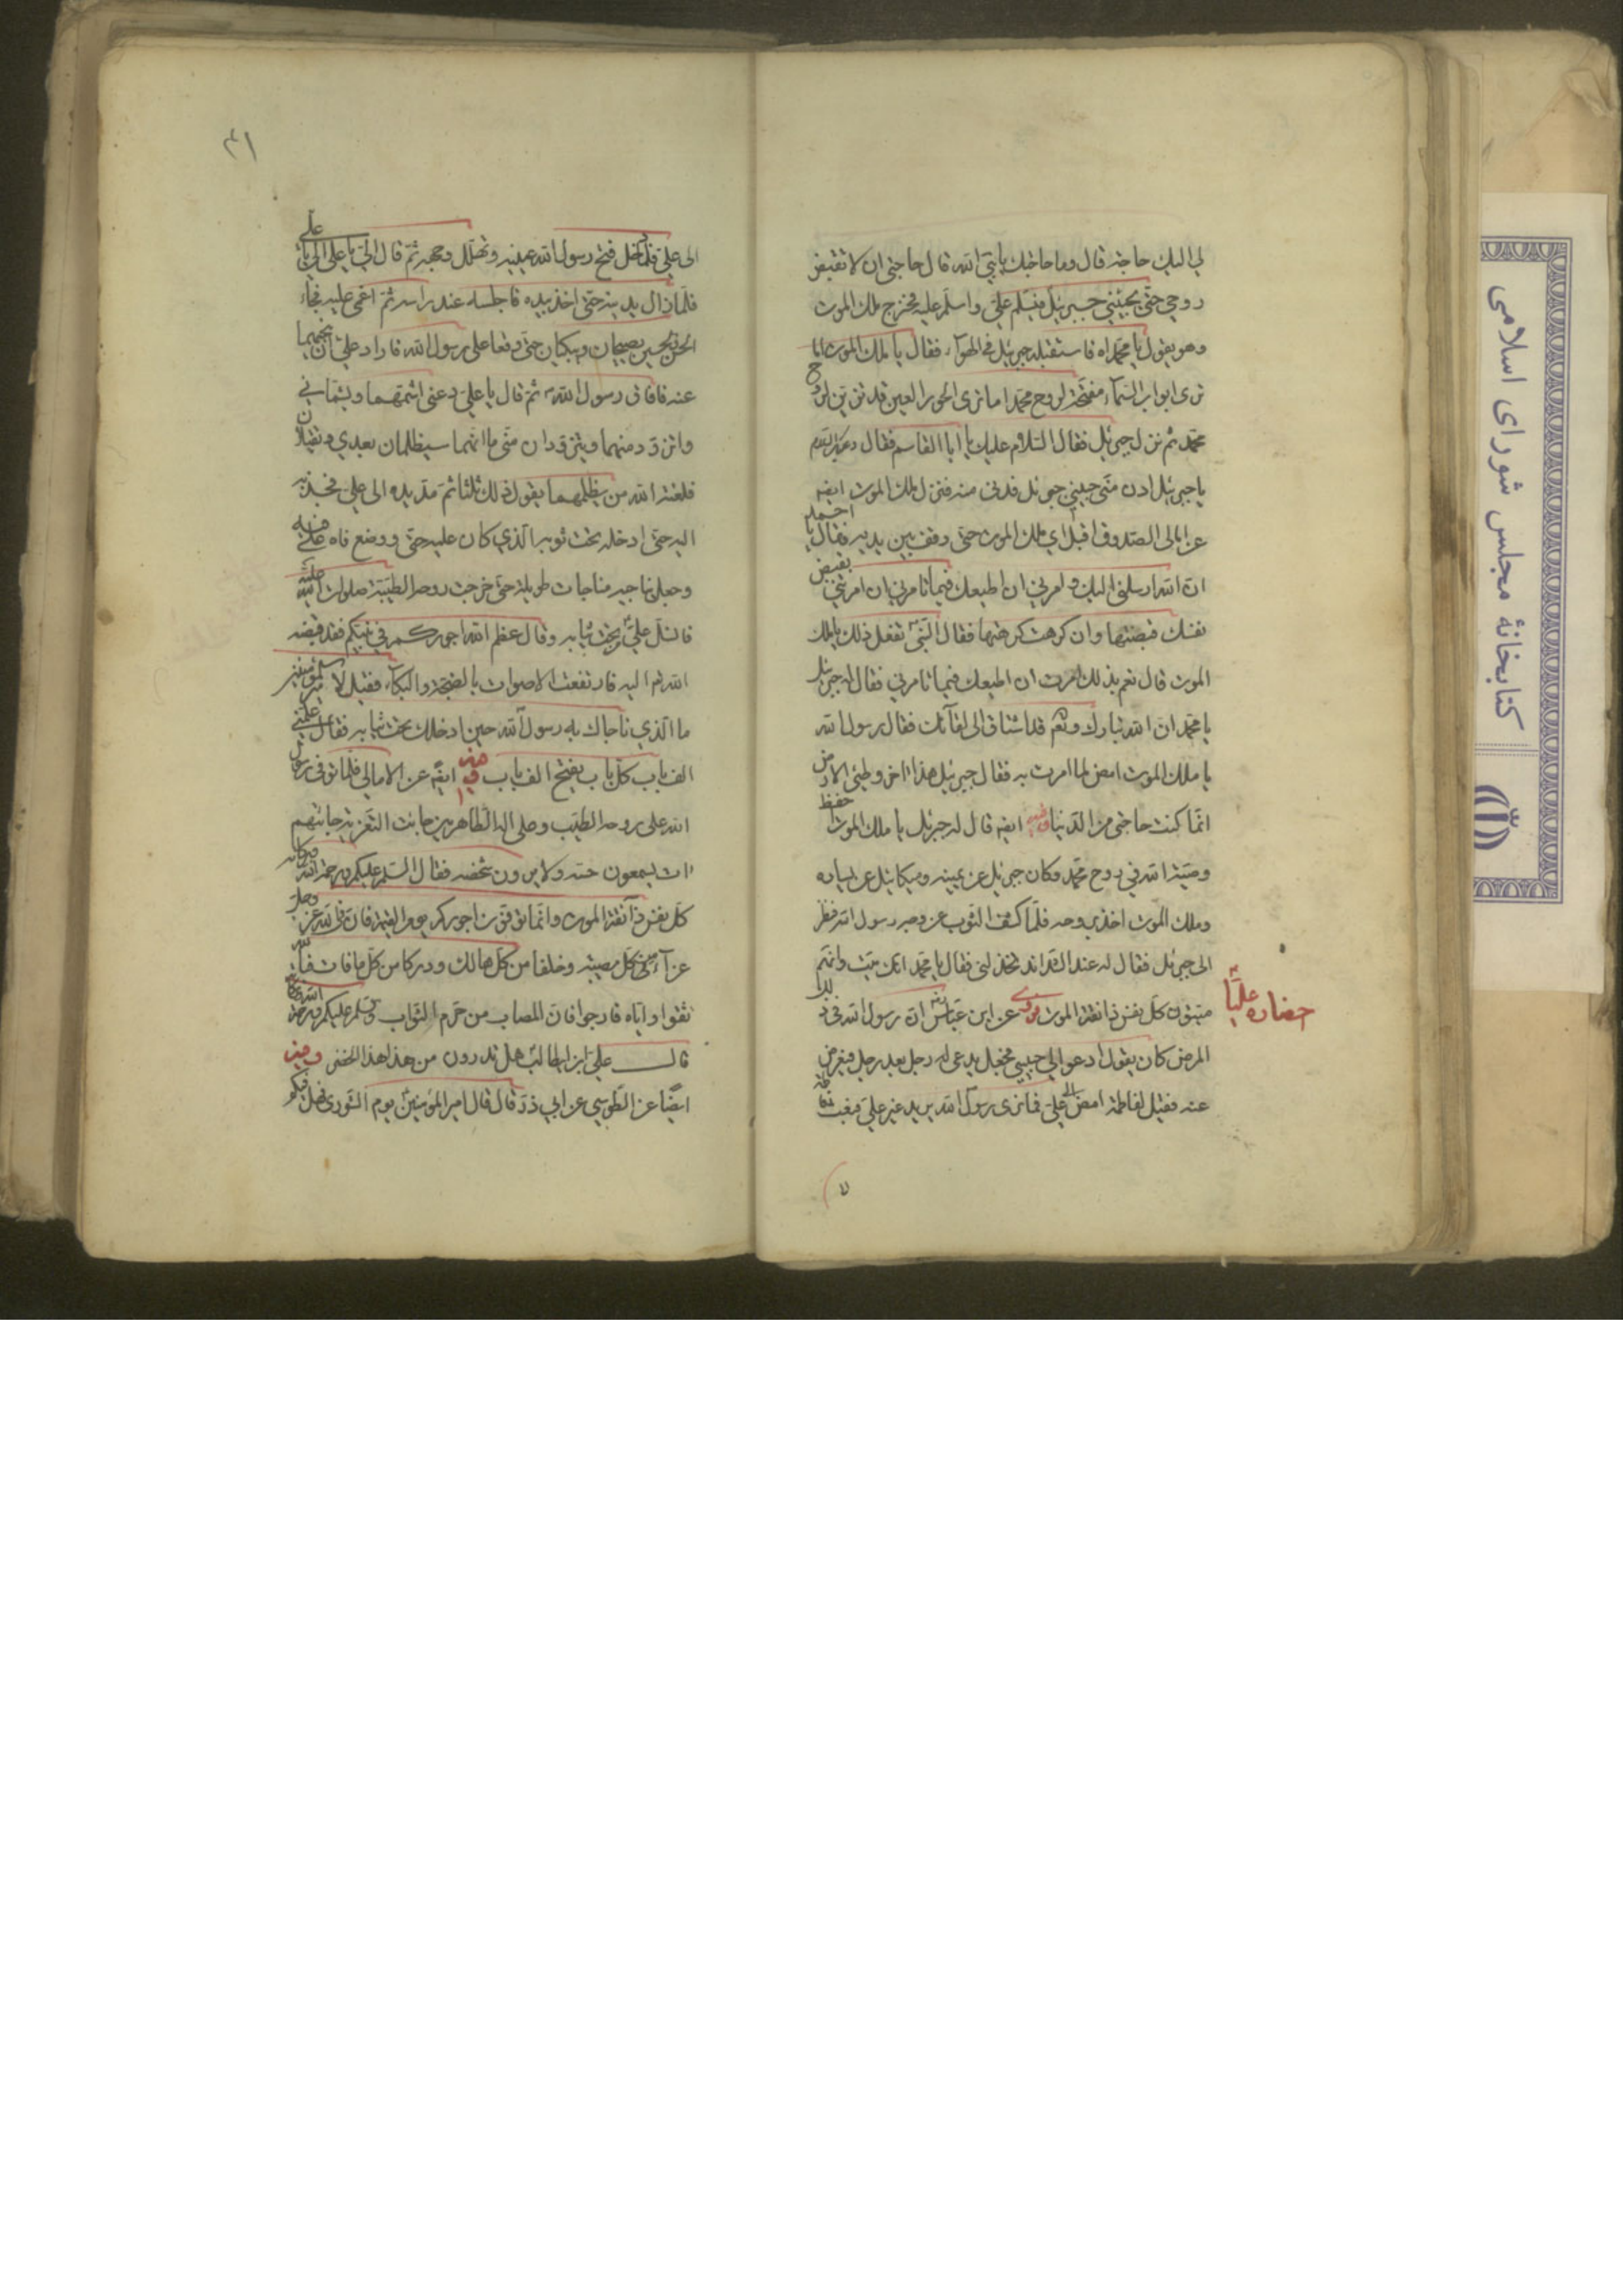 لي اليك حاجة قال وما حاجتك يا نبي الله قال حاجتي ان لا تقبض
روحي حتى يجيئني جبرئيل فيسلم علي واسلم عليه فخرج ملك الموت
وهو يقول يا محمداه فاستقبله جبرئيل في الهواء فقال يا ملك الموت اما
ترى ابواب السماء مفتحة لروح محمد اما ترى الحور العين قد تزين لروح
محمد ثم نزل جبرئيل فقال السلام عليك يا ابا القاسم فقال وعليك السلم
يا جبرئيل ادن مني حبيبي جبرئيل فدنى منه فنزل ملك الموت ايضه
عن امالى الصدوق اقبل اي ملك الموت حتى وقف بين يديه فقال يا احمد
ان الله ارسلني اليك وامرني ان اطيعك فيما تامرني ان امرتني بقبض
نفسك قبضتها وان كرهت كرهتها فقال النبي تفعل ذلك يا ملك
الموت قال نعم بذلك امرت ان اطيعك فيما تامرني فقال له جبرئيل
يا محمد ان الله تبارك وتعم قد اشتاق الى لقائك فقال رسول الله
يا ملك الموت امض لما امرت به فقال جبرئيل هذا اخر وطئى الارض
انما كنت حاجتي من الدنيا وفيه ايضه قال له جبرئيل يا ملك الموت احفظ
وصية الله في روح محمد وكان جبرئيل عن يمينه وميكائيل عن يساره
وملك الموت اخذ بروحه فلما كشف الثوب عن وجه رسول الله نظر
الى جبرئيل فقال له عند الشدائد تخذلني فقال يا محمد انك ميت وانهم
ميتون كل نفس ذائقة الموت فروى عن ابن عباس ان رسول الله في ذلك
المرض كان يقول ادعوا لي حبيبي فجعل يدعى له رجل بعد رجل فيعرض
عنه فقيل لفاطمة امضى الى علي فما نرى رسول الله يريد غير علي فبعثت فاطمة
احضاره عليا
٤١
الى علي فلما دخل فتح رسول الله عينيه وتهلل وجهه ثم قال الي يا علي الي يا علي
فلما زال يدنيه حتى اخذ بيده فاجلسه عند راسه ثم اغمى عليه فجاء
الحسن والحسين يصيحان ويبكيان حتى وقعا على رسول الله فاراد علي ان ينحيهما
عنه فافاق رسول الله ثم قال يا علي دعني اشمهما ويشماني
واتزود منهما ويتزودان مني اما انهما سيظلمان بعدي ويقتلان
فلعنة الله من يظلمهما يقول ذلك ثلثا ثم مد يده الى علي فجذبه
اليه حتى ادخله تحت ثوبه الذي كان عليه حتى ووضع فاه على فيه
وجعل يناجيه مناجات طويلة حتى خرجت روحه الطيبة صلوات الله عليه
فانسل علي من تحت ثيابه وقال عظم الله اجوركم في نبيكم فقد قبضه
الله اليه فارتفعت الاصوات بالضجة والبكاء فقيل لامير المؤمنين
ما الذي ناجاك به رسول الله حين ادخلك تحت ثيابه فقال علمني
الف باب كل باب يفتح الف باب وفيه ايضه عن الامالى فلما توفى رسول
الله على روحه الطيب وصلى اله الطاهرين جائت التعزية جائهم
ات يسمعون حسه ولا يرون شخصه فقال السلم عليكم ورحمة الله وبركاته
كل نفس ذائقة الموت وانما توفون اجوركم يوم القيمة فان في الله عز وجل
عزاء من كل مصيبة وخلفا من كل هالك ودركا من كل ما فات فبالله
فثقوا واياه فارجوا فان المصاب من حرم الثواب والسلم عليكم ورحمة الله وبركاته
قال علي ابن ابيطالب هل تدرون من هذا هذا الخضر وفيه
ايضا عن الطوسي عن ابي ذر قال قال امير المؤمنين يوم الشورى هل فيكم
كتابخانهٔ مجلس شورای اسلامی